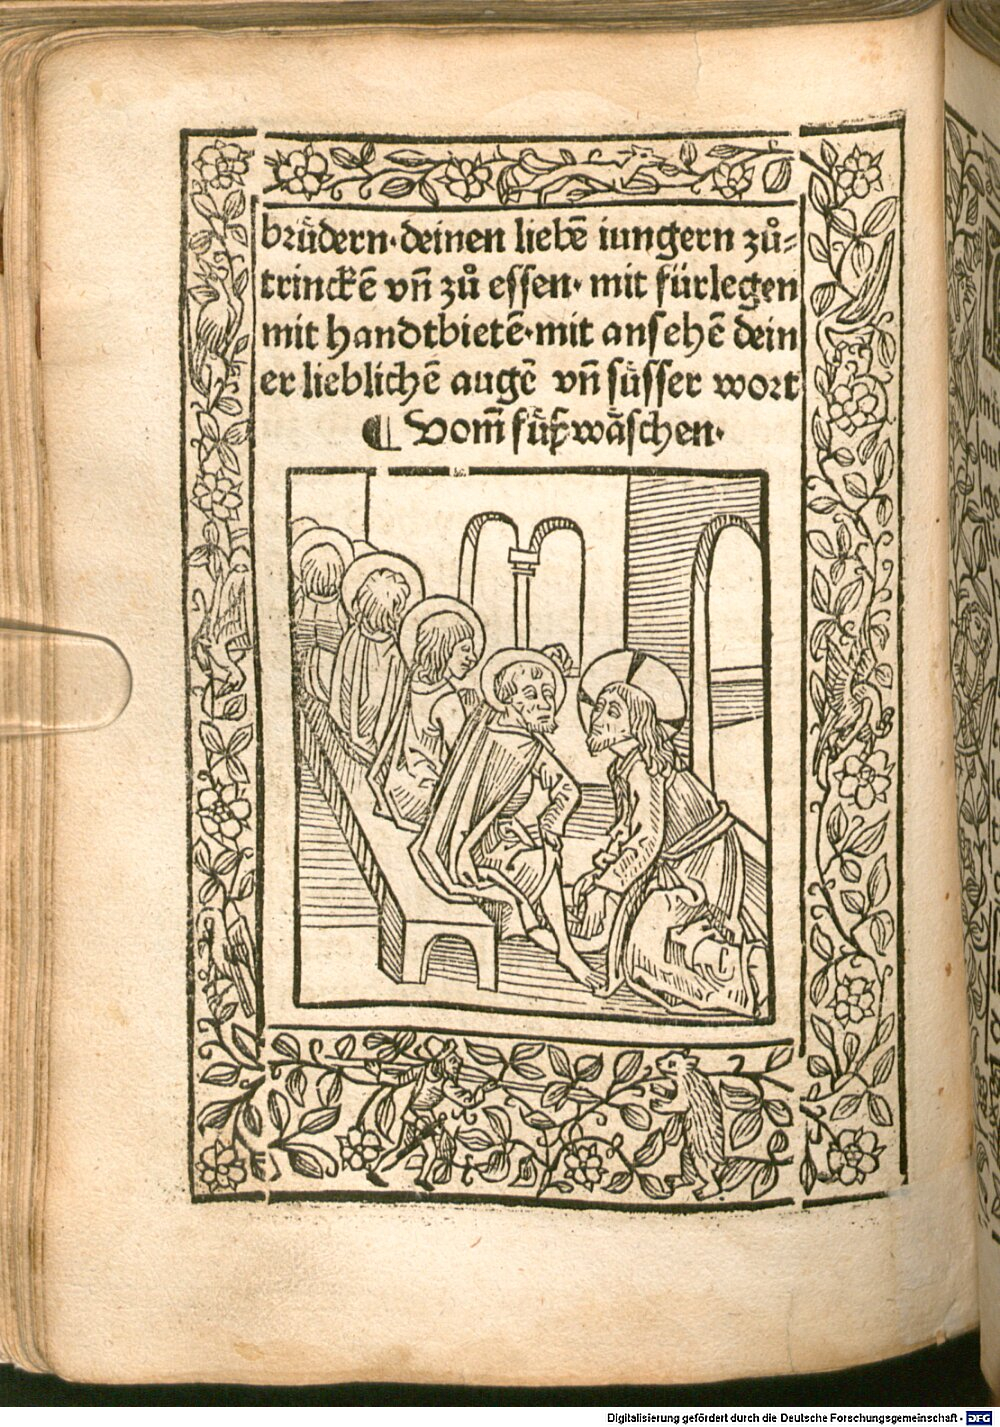 brůdern·deinen liebē iungern zů⸗
trinckē vñ zů essen· mit fürlegen
mit handtbietē·mit ansehē dein
er lieblichē augē vñ süsser wort
¶ Vom̄ fůßwäschen·
Digitalisierung gefördert durch die Deutsche Forschungsgemeinschaft - DFG